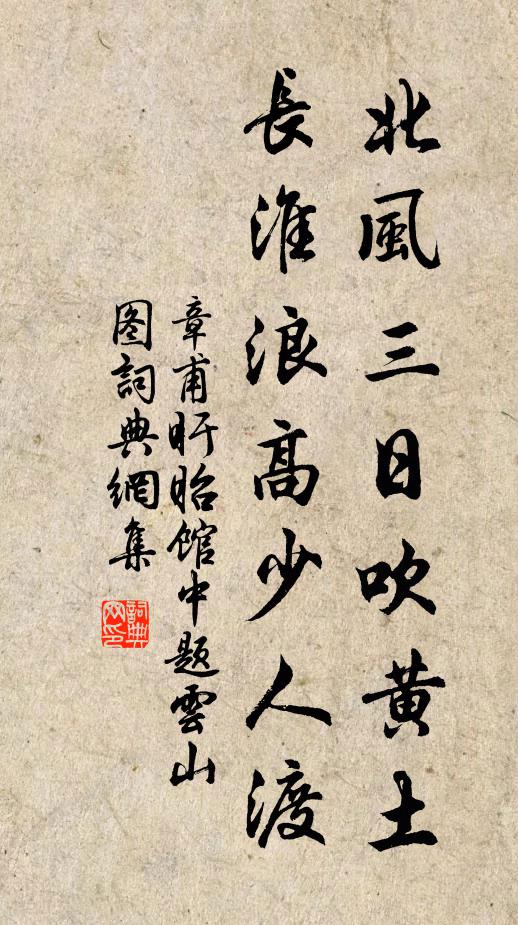 北風三日吹黃土
長淮浪高少人渡
章甫盱眙馆中题雲山
图詞典網集
詞典网印